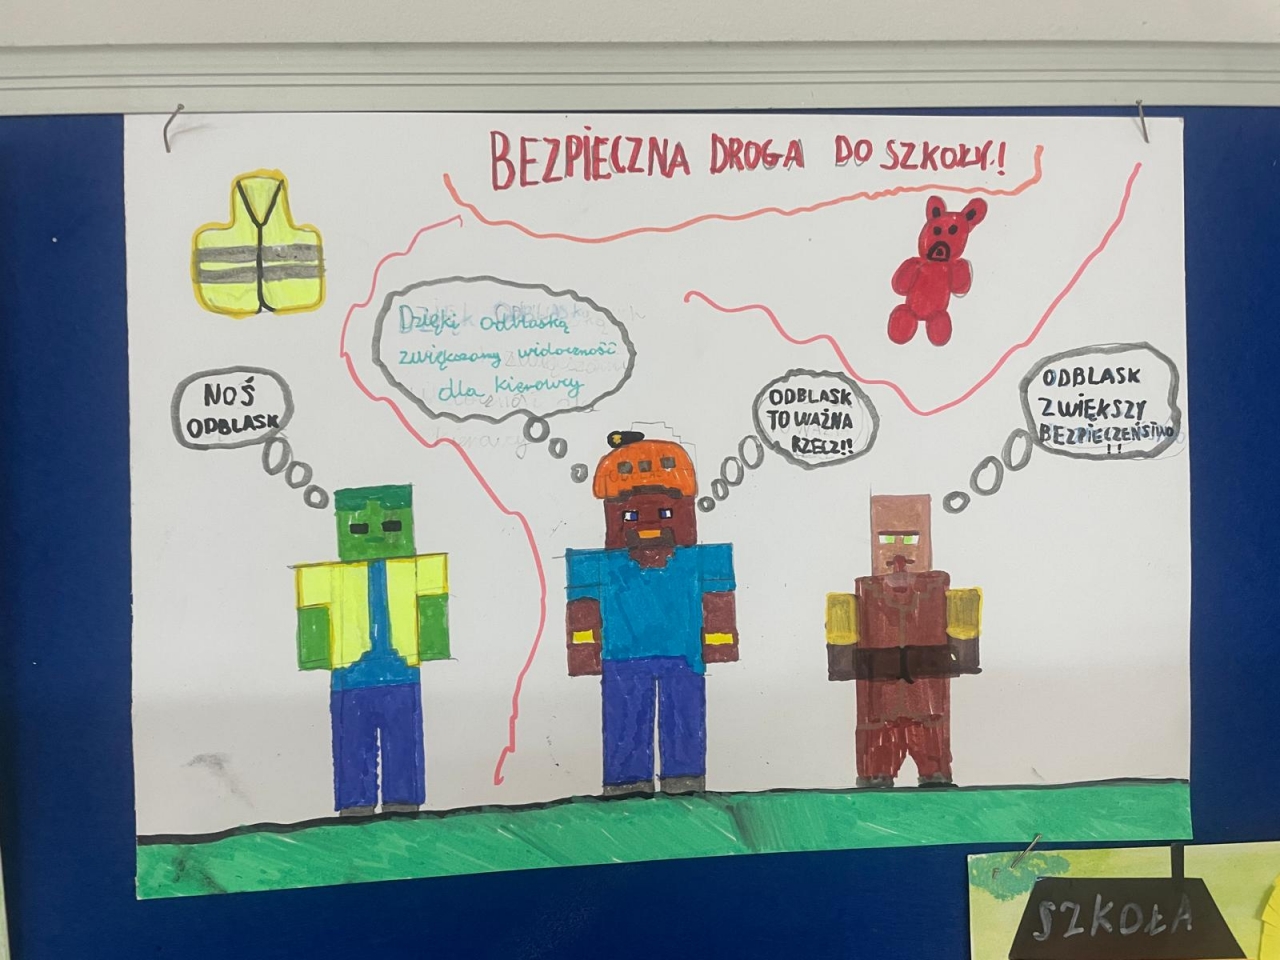 BEZPIECZNA DROGA DO SZKOŁY!
NOŚ
ODBLASK
Dzięki odblaską
zwiększamy widoczność
dla kierowcy
ODBLASK
TO WAŻNA
RZECZ!!
ODBLASK
ZWIĘKSZY
BEZPIECZEŃSTWO
!!
SZKOŁA